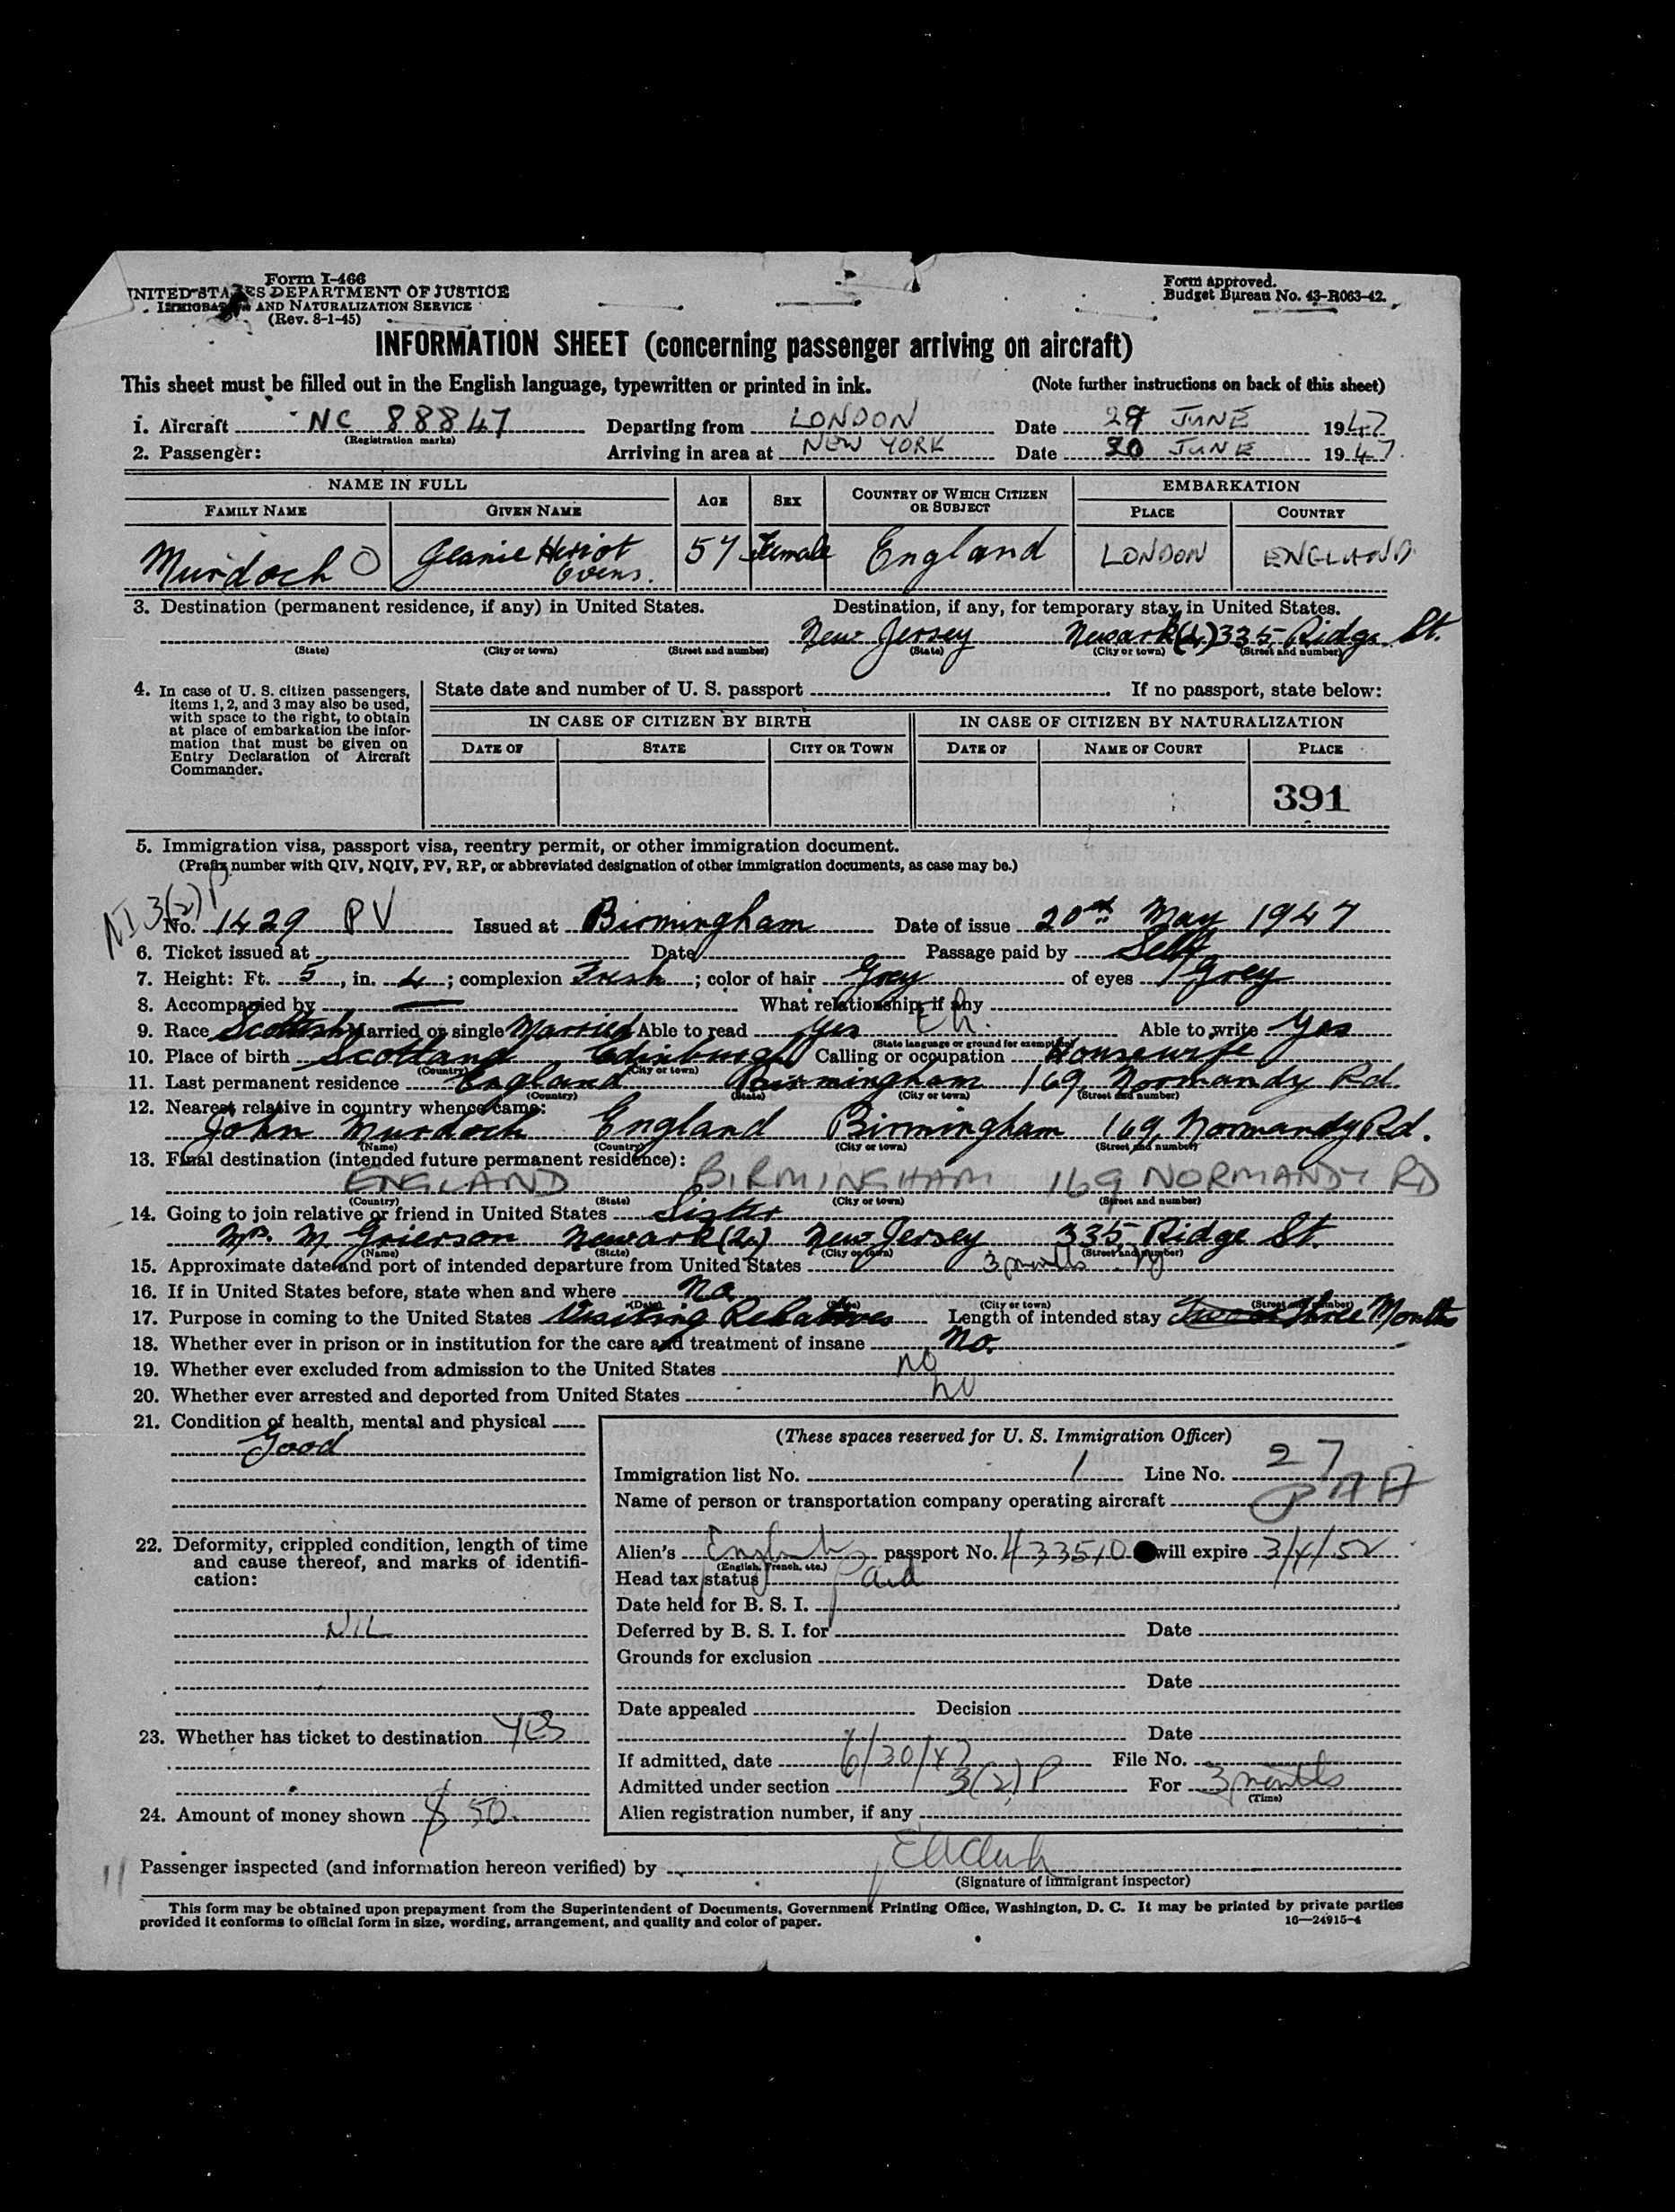 Form I-466
UNITED STATES DEPARTMENT OF JUSTICE
IMMIGRATION AND NATURALIZATION SERVICE
(Rev. 8-1-45)
Form approved.
Budget Bureau No. 43-R063-42.
INFORMATION SHEET (concerning passenger arriving on aircraft)
This sheet must be filled out in the English language, typewritten or printed in ink. (Note further instructions on back of this sheet)
1. Aircraft NC 88847 Departing from LONDON Date 29 JUNE 1947
(Registration marks)
2. Passenger: Arriving in area at NEW YORK Date 30 JUNE 1947.
NAME IN FULL AGE SEX COUNTRY OF WHICH CITIZEN OR SUBJECT EMBARKATION
FAMILY NAME GIVEN NAME PLACE COUNTRY
Murdoch Jeanie Heriot 57 Female England LONDON ENGLAND
3. Destination (permanent residence, if any) in United States. Destination, if any, for temporary stay in United States.
New Jersey Newark 335 Ridge St.
(State) (City or town) (Street and number) (State) (City or town) (Street and number)
4. In case of U. S. citizen passengers, items 1, 2, and 3 may also be used, with space to the right, to obtain at place of embarkation the information that must be given on Entry Declaration of Aircraft Commander.
State date and number of U. S. passport If no passport, state below:
IN CASE OF CITIZEN BY BIRTH IN CASE OF CITIZEN BY NATURALIZATION
DATE OF STATE CITY OR TOWN DATE OF NAME OF COURT PLACE
391
5. Immigration visa, passport visa, reentry permit, or other immigration document.
(Prefix number with QIV, NQIV, PV, RP, or abbreviated designation of other immigration documents, as case may be.)
NI 3(2)P
No. 1429 PV Issued at Birmingham Date of issue 20th May 1947
6. Ticket issued at Date Passage paid by Self
7. Height: Ft. 5, in. 4; complexion Fresh; color of hair Grey of eyes Grey
8. Accompanied by — What relationship, if any
9. Race Scottish Married or single Married Able to read Yes Eh. Able to write Yes
(State language or ground for exemption)
10. Place of birth Scotland Edinburgh Calling or occupation Housewife
(Country) (City or town)
11. Last permanent residence England Birmingham 169, Normandy Rd.
(Country) (State) (City or town) (Street and number)
12. Nearest relative in country whence came:
John Murdoch England Birmingham 169, Normandy Rd.
(Name) (Country) (City or town) (Street and number)
13. Final destination (intended future permanent residence):
ENGLAND BIRMINGHAM 169 NORMANDY RD
(Country) (State) (City or town) (Street and number)
14. Going to join relative or friend in United States Sister
Mrs. M. Grierson Newark New Jersey 335 Ridge St.
(Name) (State) (City or town) (Street and number)
15. Approximate date and port of intended departure from United States 3 months NY
16. If in United States before, state when and where No.
(Date) (State) (City or town) (Street and number)
17. Purpose in coming to the United States Visiting Relatives Length of intended stay Three Months
18. Whether ever in prison or in institution for the care and treatment of insane No.
19. Whether ever excluded from admission to the United States no
20. Whether ever arrested and deported from United States no
21. Condition of health, mental and physical
Good
22. Deformity, crippled condition, length of time and cause thereof, and marks of identification:
NIL
23. Whether has ticket to destination YES
24. Amount of money shown $ 50.
(These spaces reserved for U. S. Immigration Officer)
Immigration list No. 1 Line No. 27
Name of person or transportation company operating aircraft PAA
Alien's English passport No. 433510 will expire 3/4/52
(English, French, etc.)
Head tax status Paid
Date held for B. S. I.
Deferred by B. S. I. for Date
Grounds for exclusion
Date
Date appealed Decision
Date
If admitted, date 6/30/47 File No.
Admitted under section 3(2)P For 3 months
(Time)
Alien registration number, if any
11
Passenger inspected (and information hereon verified) by
(Signature of immigrant inspector)
This form may be obtained upon prepayment from the Superintendent of Documents, Government Printing Office, Washington, D. C. It may be printed by private parties
provided it conforms to official form in size, wording, arrangement, and quality and color of paper. 16—24915-4